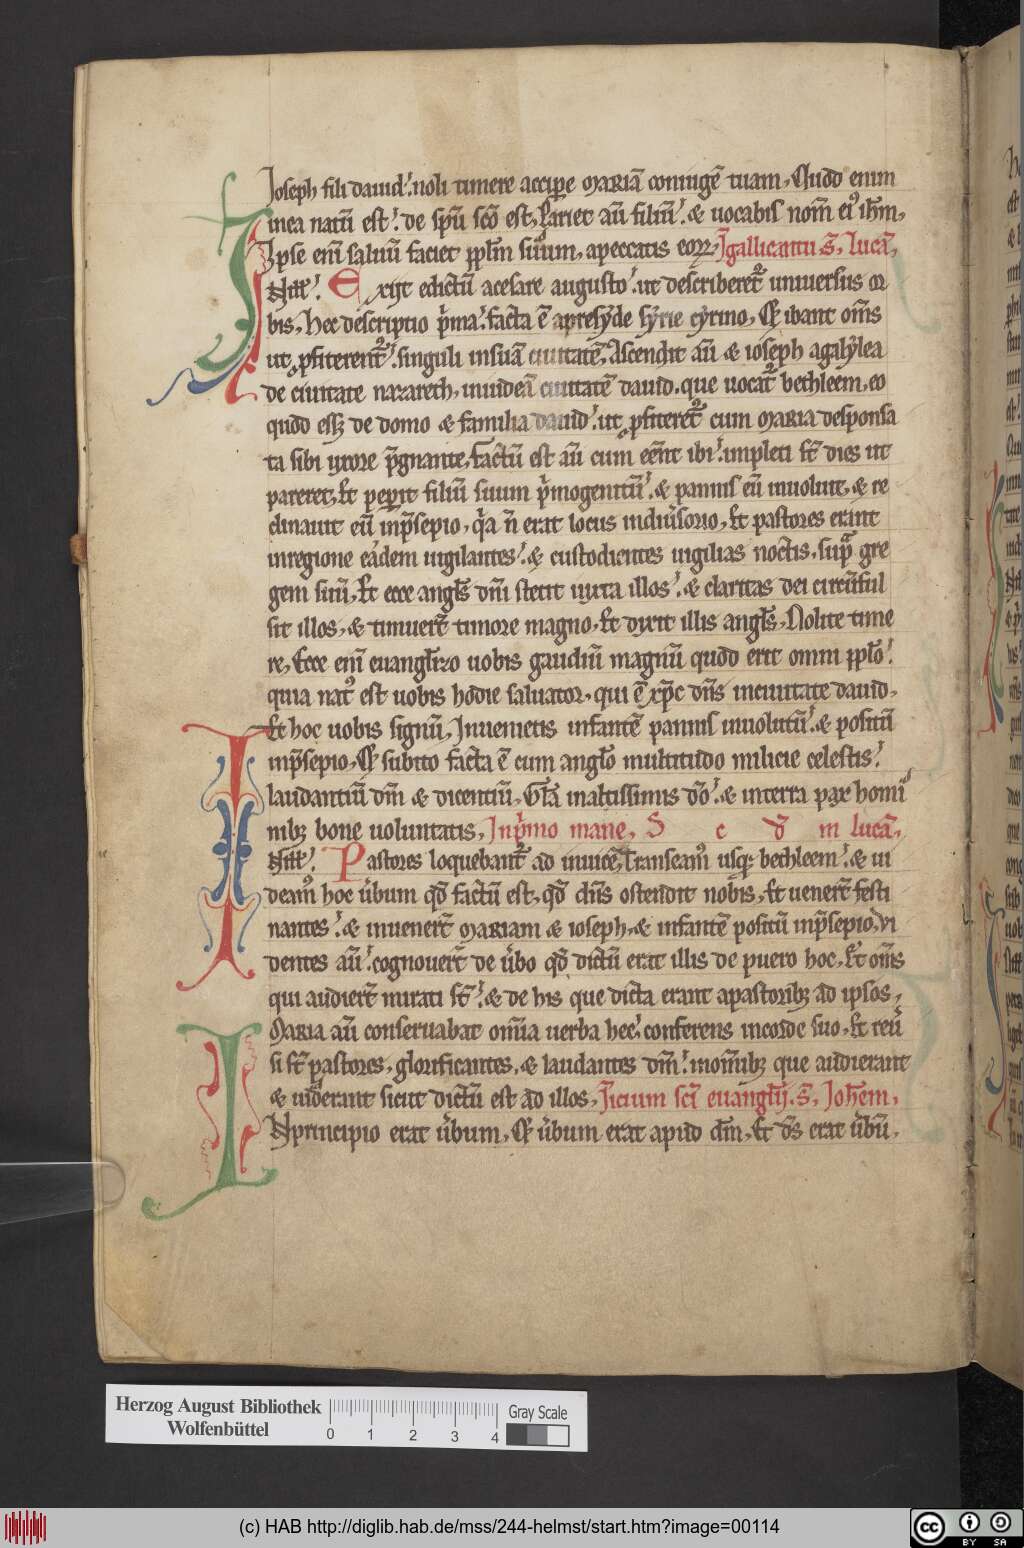 Ioseph fili dauid. noli timere accipe MARIÃ coniugē tuam. Quod enim
inea natū est. de spū scō est. Pariet aū filiū. & uocabis nom̄ ei᷒ ihm̄.
Ipse eni saluū faciet pplm̄ suum. apeccatis eoꝝ. Igallicantu S. Lucā.
IN ill'. Exijt edictū acesare augusto. ut describeret᷑ uniuersus or
bis. Hec descriptio p̄ma. facta ē apresyde syrie cyrino. Et ibant om̄s
ut ꝓfiterent᷑. singuli insuā ciuitatē. Ascendit aū & ioseph agalylea
de ciuitate nazareth. iniudeā ciuitatē dauid. que uocat᷑ bethleem. eo
quod esset de domo & familia dauid. ut ꝓfiteret᷑ cum MARIA desponsa
ta sibi uxore p̄gnante. factū est aū cum eēnt ibi. impleti st̄ dies ut
pareret. Et peperit filiū suum p̄mogenitū. & pannis eū inuoluit. & re
clinauit eū inp̄sepio. q̄a n̄ erat locus indiu̓sorio. Et pastores erant
inregione eadem uigilantes. & custodientes uigilias noctis. sup̄ gre
gem suū. Et ecce angl's dn̄i stetit iuxta illos. & claritas dei circūful
sit illos. & timuer̄t timore magno. Et dixit illis angl's. Nolite time
re. Ecce eni euangl'izo uobis gaudiū magnū quod erit omni pplo.
quia nat᷒ est uobis hodie saluator. qui ē xp̄c dn̄s inciuitate dauid.
Et hoc uobis signū. Inuenietis infantē pannis inuolutū. & positū
inp̄sepio. Et subito facta ē cum anglo multitudo milicie celestis.
laudantiū dm̄ & dicentiū. Gl'a inaltissimis dō. & interra pax homi
nibꝫ bone uoluntatis. Inp̄mo mane. S c đ m lucā.
IN ill'. Pastores loquebant᷑ ad inuicē. Transeam᷒ usqꝫ bethleem. & ui
deam᷒ hoc u̓bum qđ factū est. qđ dn̄s ostendit nobis. Et uener̄t festi
nantes. & inuener̄t MARIAM & ioseph. & infantē positū inp̄sepio. Vi
dentes aū. cognouer̄t de u̓bo qđ dictū erat illis de puero hoc. Et om̄s
qui audier̄t mirati st̄. & de his que dicta erant apastoribꝫ ad ipsos.
MARIA aū conseruabat om̄ia uerba hec. conferens incorde suo. Et reu̓
si st̄ pastores. glorificantes. & laudantes dm̄. inom̄ibꝫ que audierant
& uiderant sicut dictū est ad illos. Iicium sc̄i euanglij. S. Johem.
IN principio erat u̓bum. Et u̓bum erat apud dm̄. Et ds̄ erat u̓bū.
Herzog August Bibliothek
Wolfenbüttel
Gray Scale
0 1 2 3 4
(c) HAB http://diglib.hab.de/mss/244-helmst/start.htm?image=00114
cc BY SA